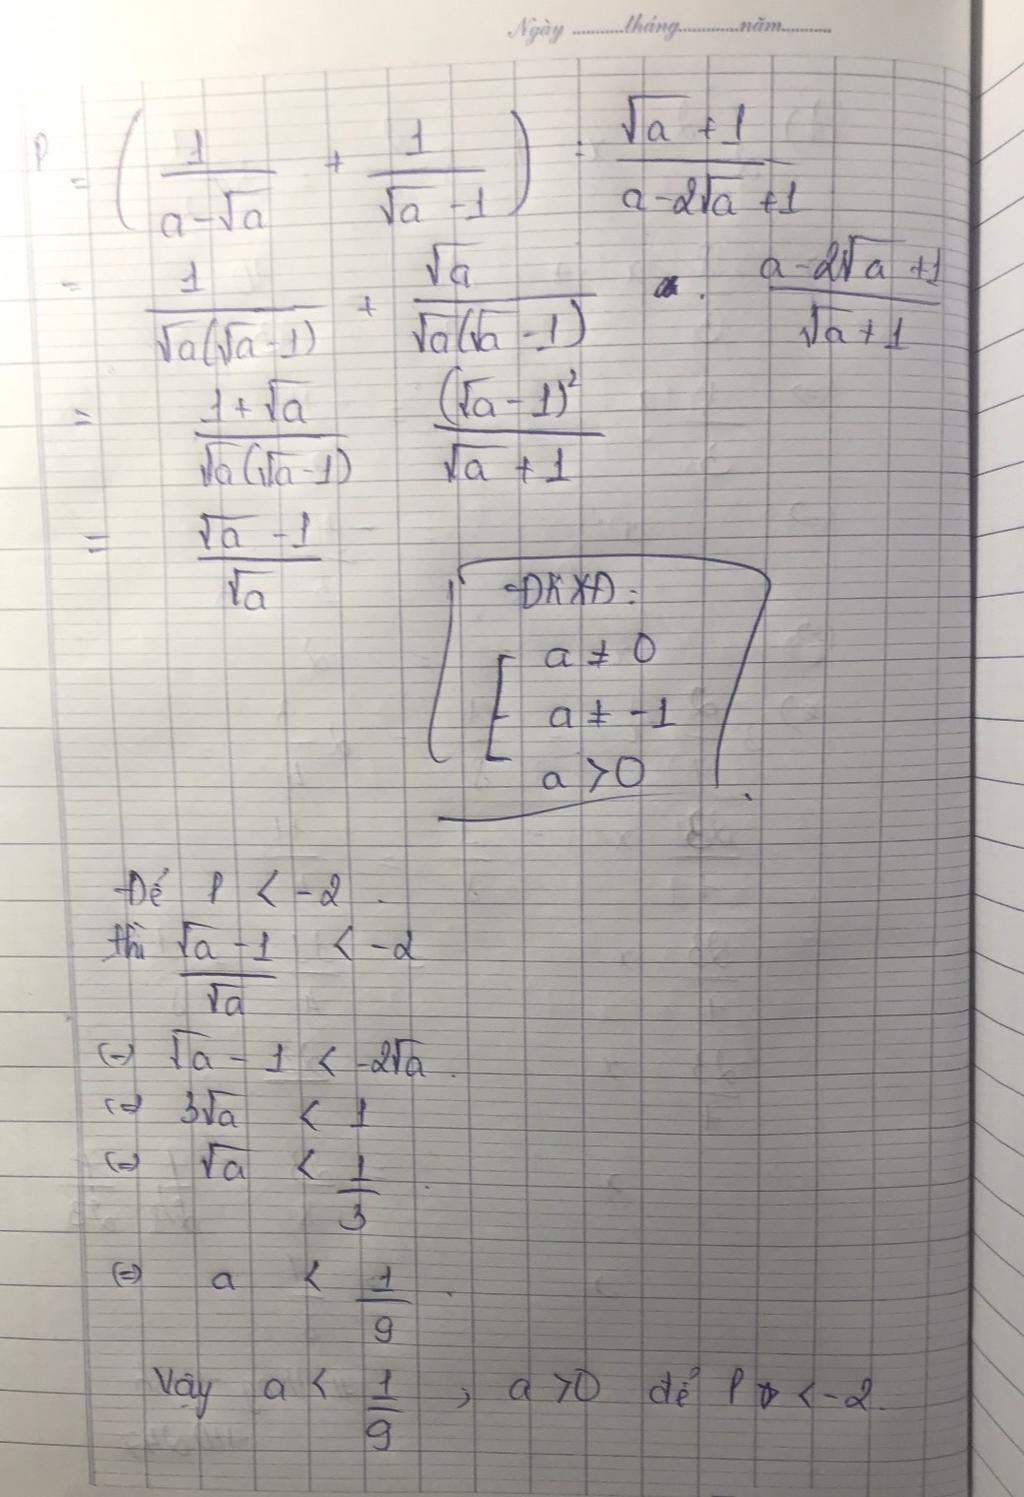 Ngày ...........tháng............năm..........
P = ( 1/(a-√a) + 1/(√a -1) ) : (√a +1)/(a-2√a +1)
= 1/(√a(√a-1)) + √a/(√a(√a -1)) . (a-2√a +1)/(√a+1)
= (1+√a)/(√a(√a-1)) (√a-1)²/(√a +1)
= (√a -1)/√a
ĐKXĐ:
[ a ≠ 0
a ≠ -1
a >0
Để P < -2.
thì (√a -1)/√a < -2
(=) √a - 1 < -2√a.
(=) 3√a < 1
(=) √a < 1/3.
(=) a < 1/9.
Vậy a < 1/9, a >0 để P < -2.